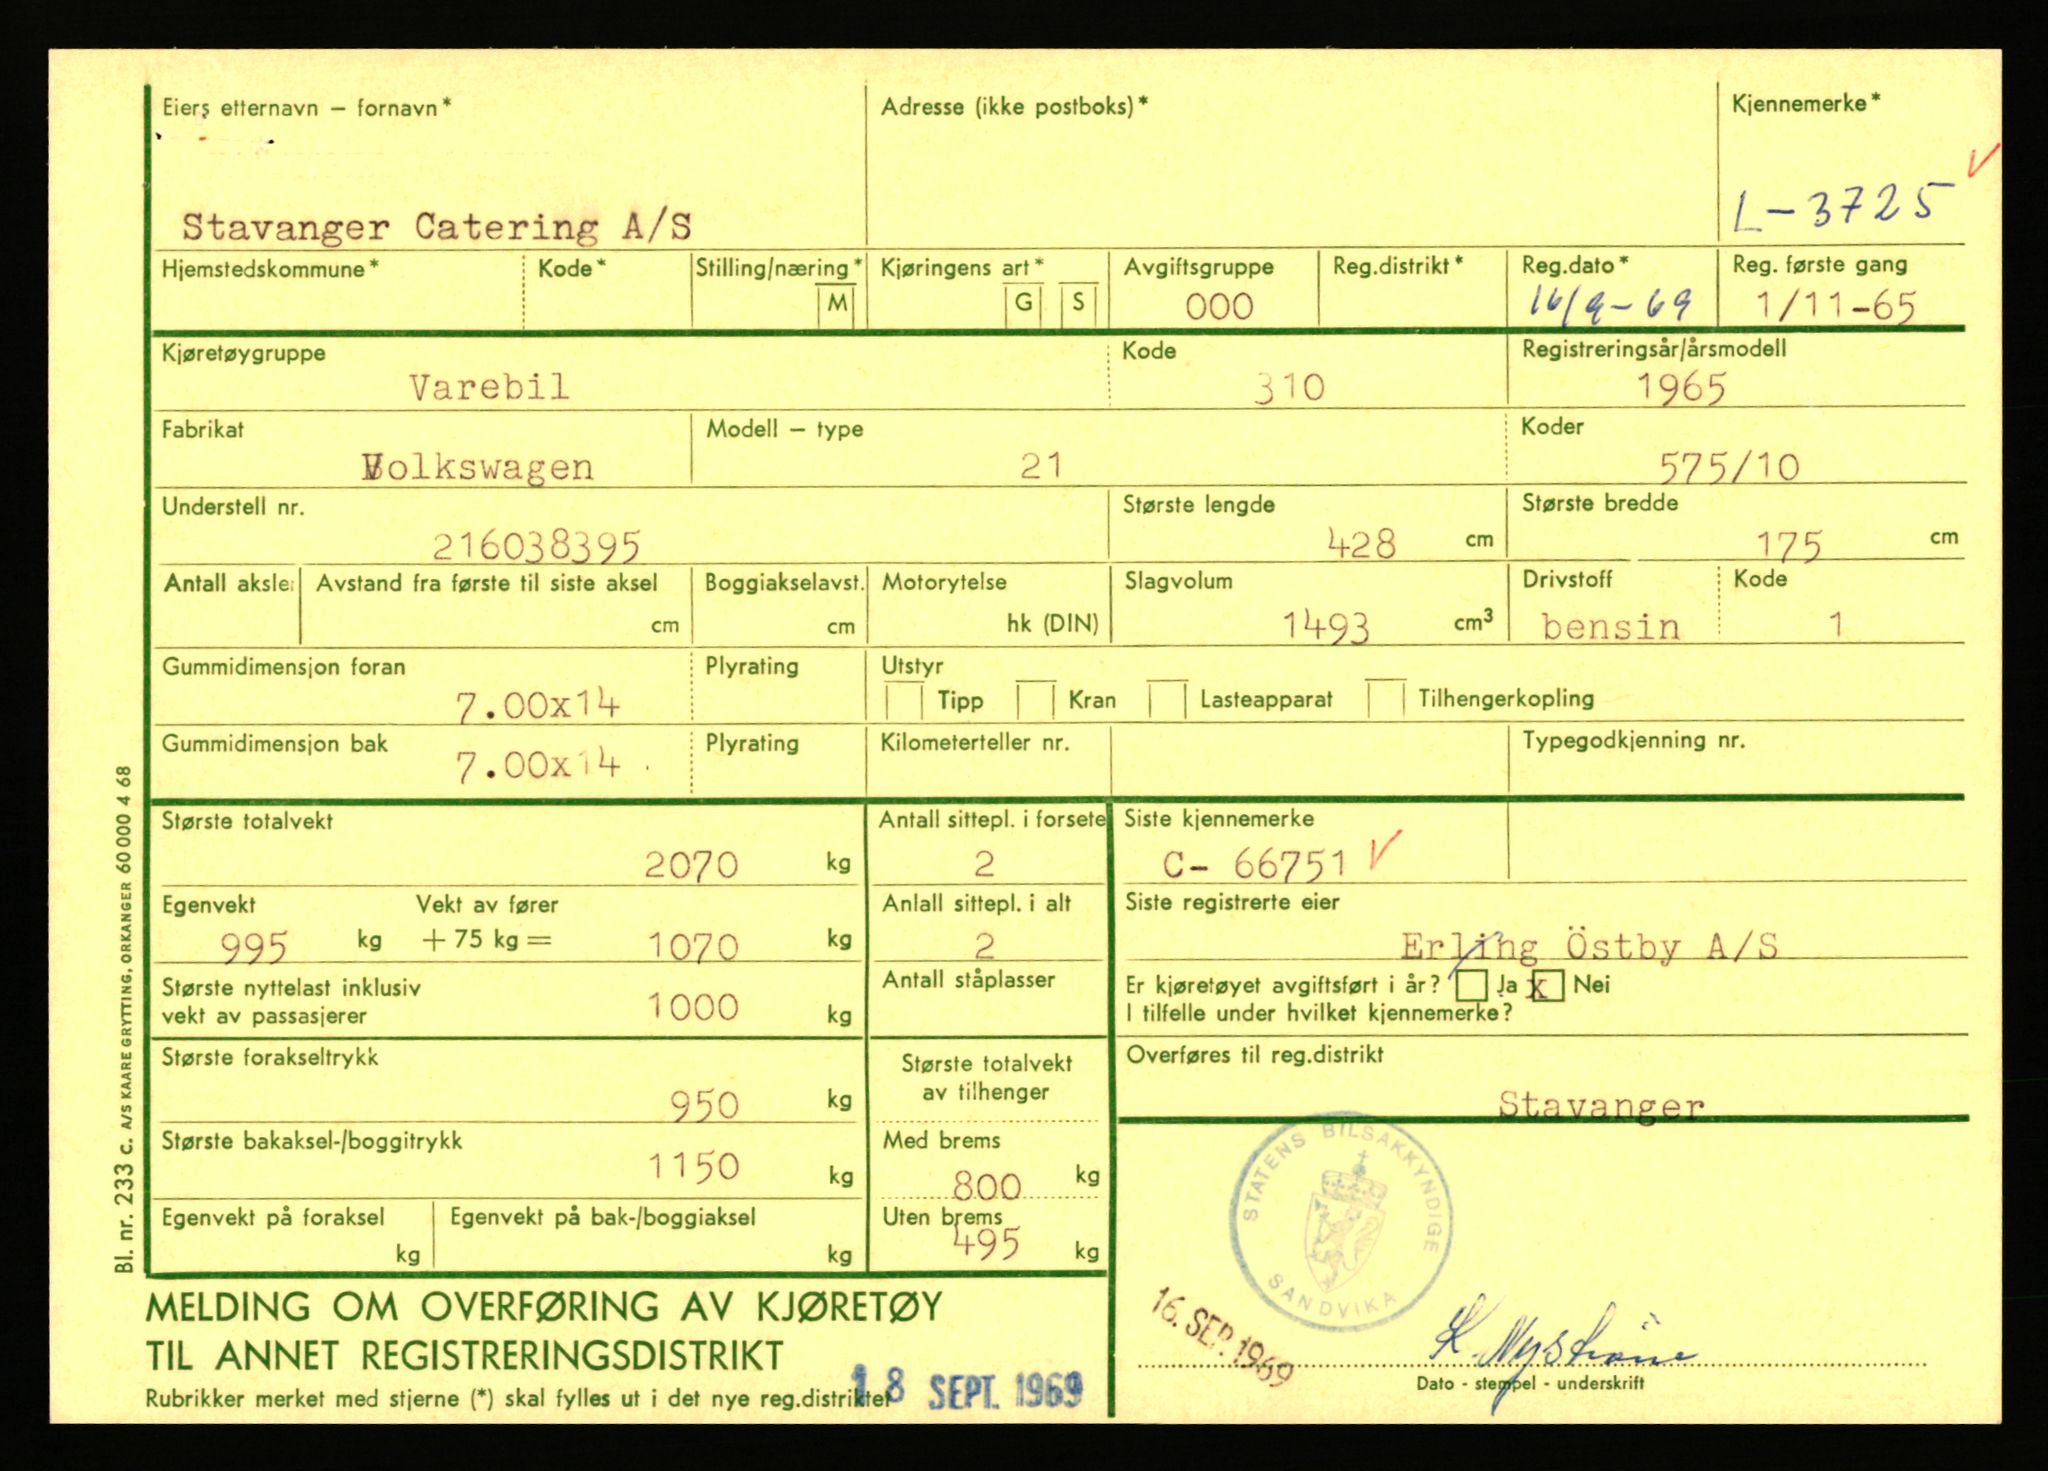 Eiers etternavn – fornavn*
Adresse (ikke postboks)*
Kjennemerke*
Stavanger Catering A/S
L-3725
Hjemstedskommune*
Kode*
Stilling/næring*
M
Kjøringens art*
G
S
Avgiftsgruppe
000
Reg.distrikt*
Reg.dato*
16/9-69
Reg. første gang
1/11-65
Kjøretøygruppe
Varebil
Kode
310
Registreringsår/årsmodell
1965
Fabrikat
Volkswagen
Modell – type
21
Koder
575/10
Understell nr.
216038395
Største lengde
428 cm
Største bredde
175 cm
Antall aksle
Avstand fra første til siste aksel
cm
Boggiakselavst.
cm
Motorytelse
hk (DIN)
Slagvolum
1493 cm3
Drivstoff
bensin
Kode
1
Gummidimensjon foran
7.00x14
Plyrating
Utstyr
Tipp
Kran
Lasteapparat
Tilhengerkopling
Gummidimensjon bak
7.00x14
Plyrating
Kilometerteller nr.
Typegodkjenning nr.
Største totalvekt
2070 kg
Antall sittepl. i forsete
2
Siste kjennemerke
C- 66751
Egenvekt
995 kg
Vekt av fører
+ 75 kg = 1070 kg
Anlall sittepl. i alt
2
Siste registrerte eier
Erling Östby A/S
Største nyttelast inklusiv
vekt av passasjerer
1000 kg
Antall ståplasser
Er kjøretøyet avgiftsført i år? Ja x Nei
I tilfelle under hvilket kjennemerke?
Største forakseltrykk
950 kg
Største totalvekt
av tilhenger
Overføres til reg.distrikt
Stavanger
Største bakaksel-/boggitrykk
1150 kg
Med brems
800 kg
Egenvekt på foraksel
kg
Egenvekt på bak-/boggiaksel
kg
Uten brems
495 kg
STATENS BILSAKKYNDIGE
SANDVIKA
16. SEP. 1969
K. Nyström
Dato - stempel - underskrift
MELDING OM OVERFØRING AV KJØRETØY
TIL ANNET REGISTRERINGSDISTRIKT
Rubrikker merket med stjerne (*) skal fylles ut i det nye reg.distriktet
18 SEPT. 1969
Bl. nr. 233 c. A/S KAARE GRYTTING, ORKANGER 60 000 4 68